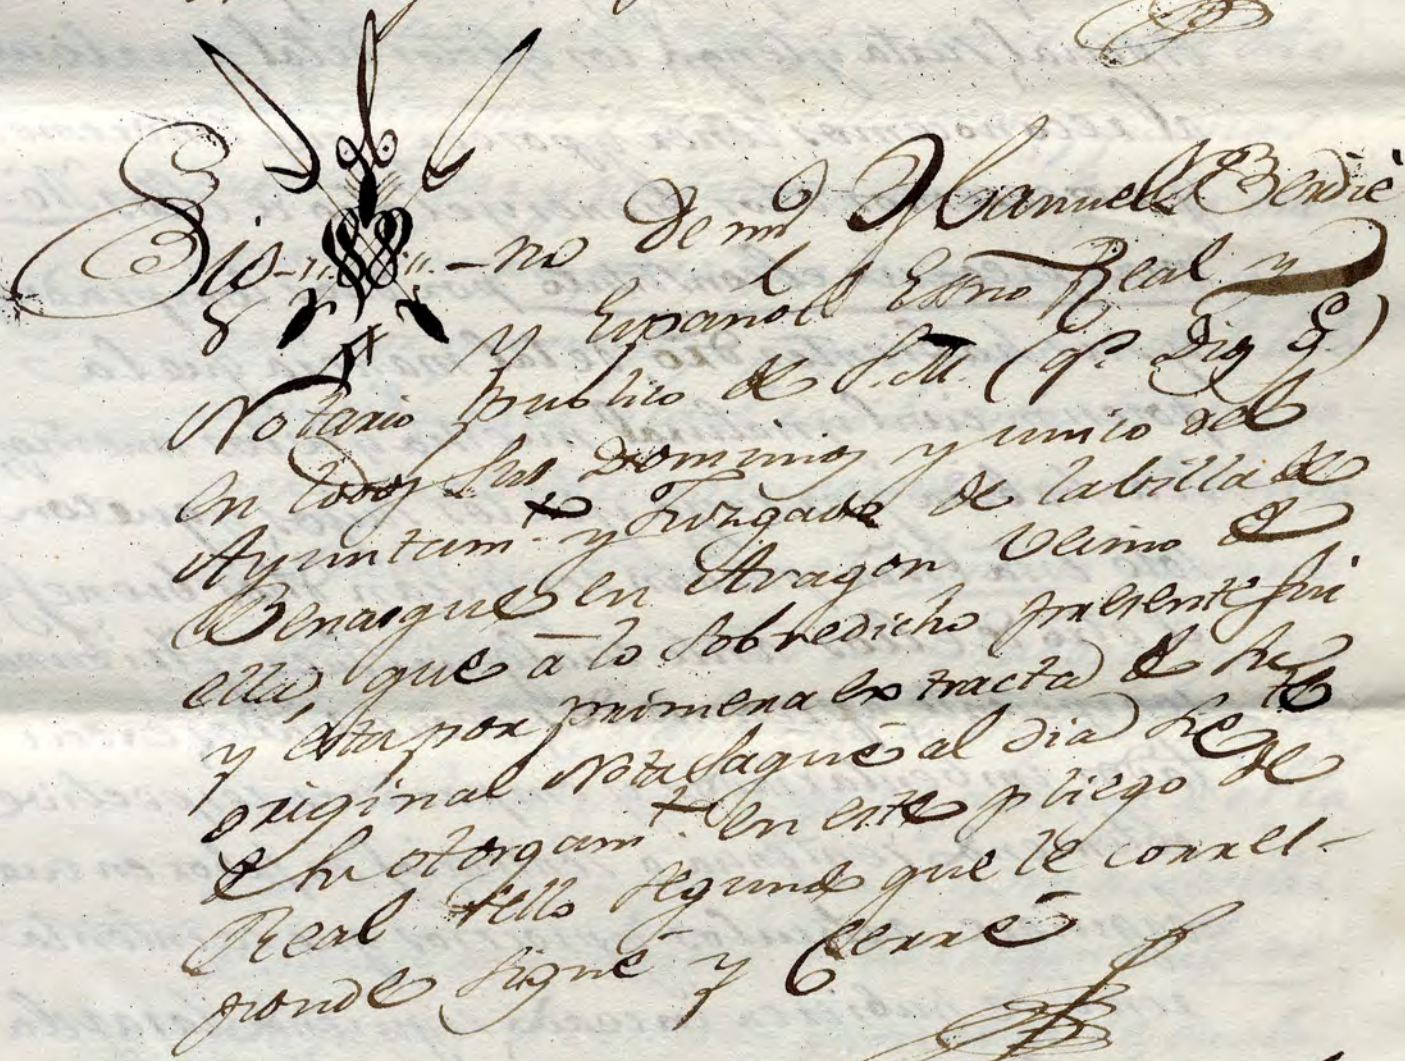 Sig-no De mi Manuel Berdié
y Español Essno Real y
Notario publico de S.M. (q.e Dios G.)
en todos sus Dominios y unico del
Ayuntam.to y Juzgado de la Villa de
Benasque en Aragon Vecino de
ella, que à lo sobredicho presente fui
y esta por primera extracta de su
original Nota saqué al dia siete
de su otorgam.to en este pliego de
Real sello segundo que le corres-
ponde signé y Cerré